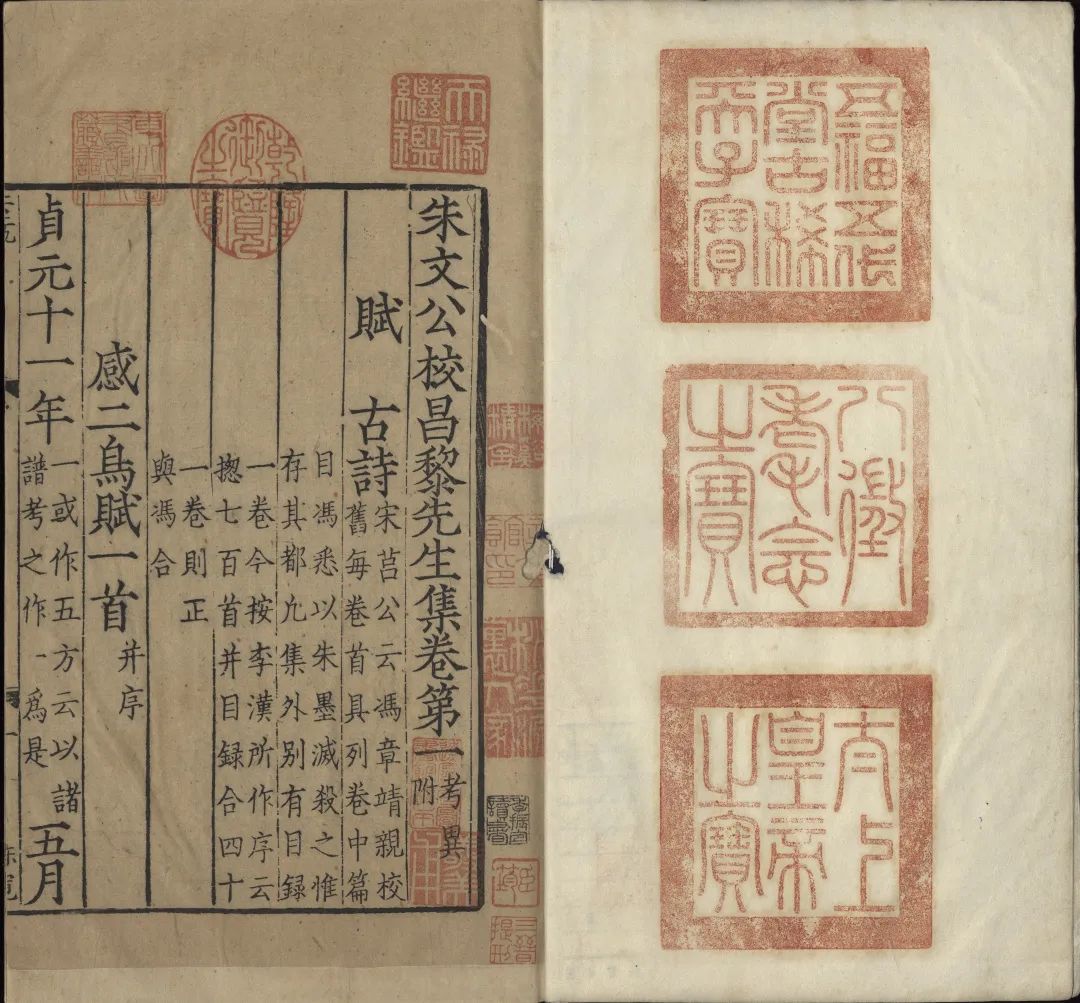 五福五代
堂古稀
天子寶
八徵
耄念
之寶
太上
皇帝
之寶
天禄
繼鑑
乾隆
御覽
之寶
朱文公校昌黎先生集卷第一
考異
附
賦 古詩
宋莒公云馮章靖親校
舊每卷首具列卷中篇
目馮悉以朱墨滅殺之惟
存其都凢集外别有目録
一卷今按李漢所作序云
揔七百首并目録合四十
一卷則正
與馮合
感二鳥賦一首并序
貞元十一年
一或作五方云以諸
譜考之作一爲是
五月